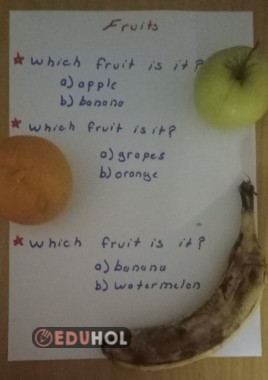 Fruits
★ Which fruit is it?
a) apple
b) banana
★ Which fruit is it?
a) grapes
b) orange
★ Which fruit is it?
a) banana
b) watermelon
EDUHOL